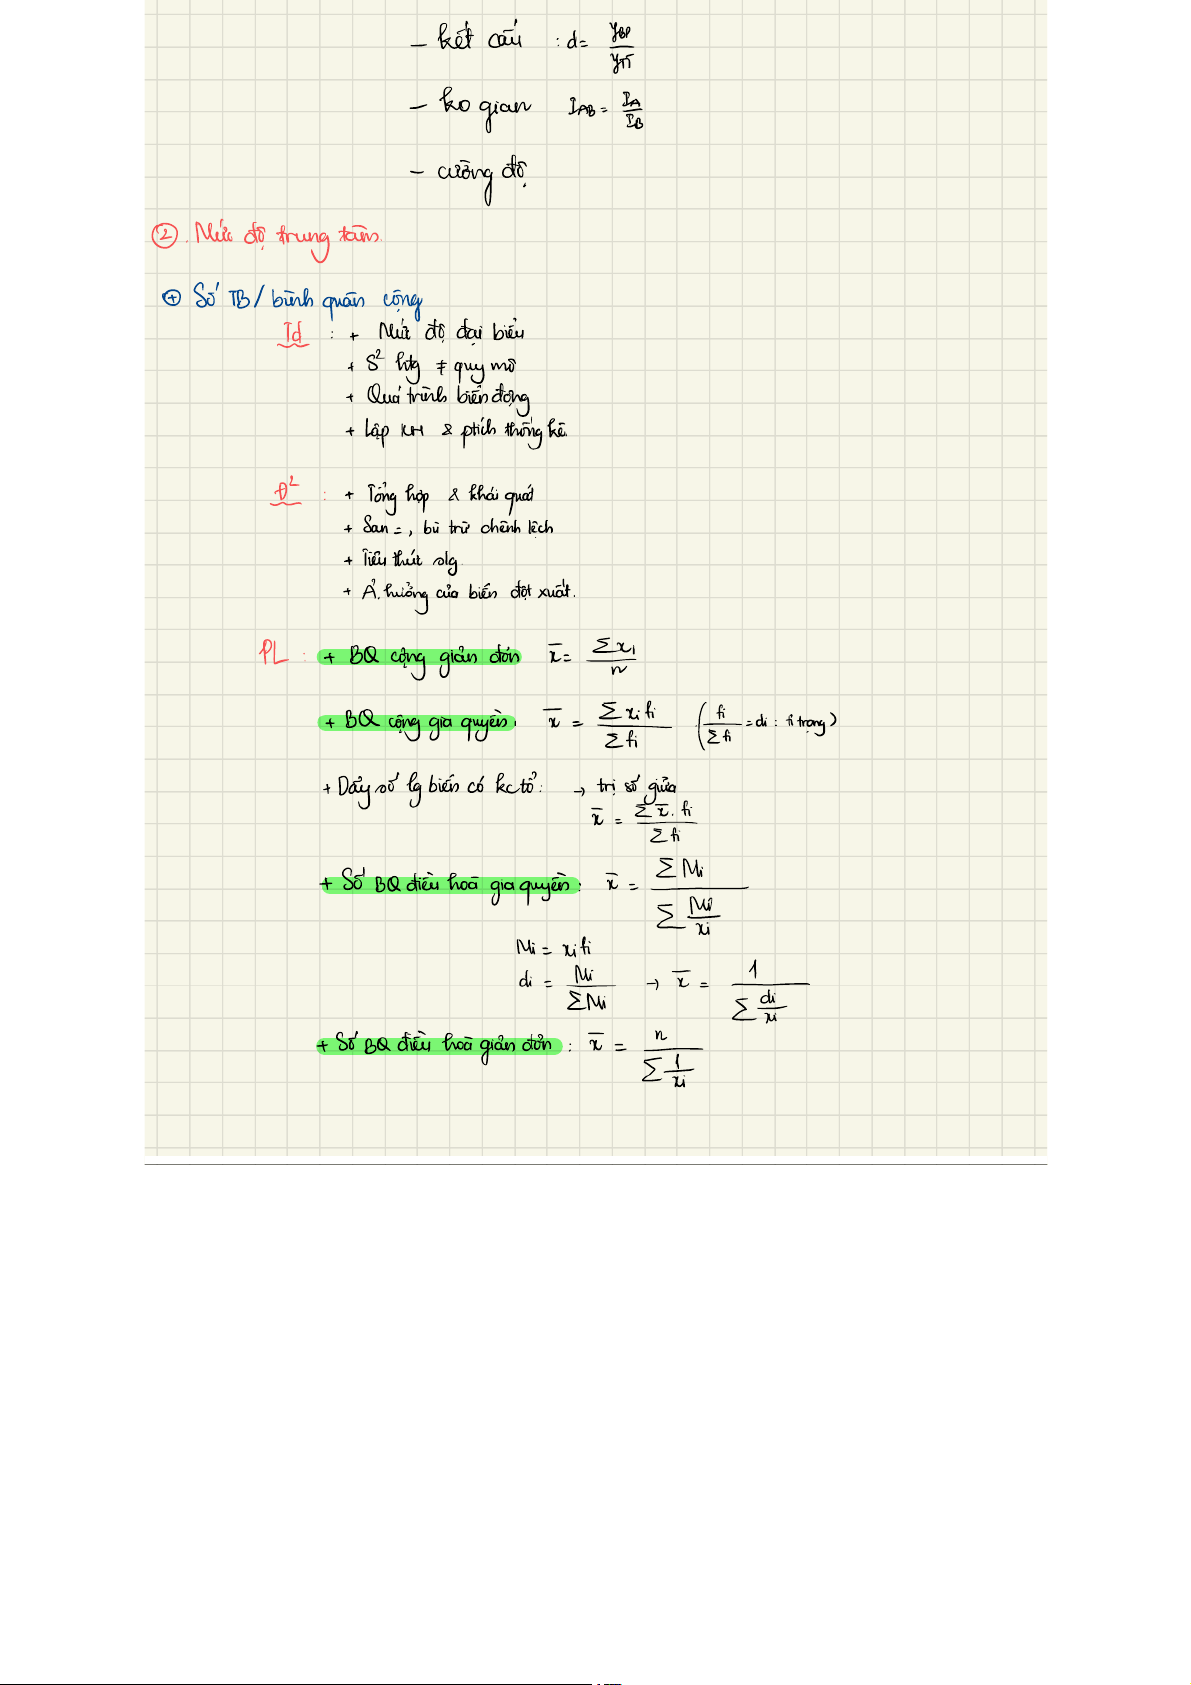 - kết cấu : d = yBP / yTT
- ko gian IAB = IA / IB
- cường độ
② . Mức độ trung tâm.
⊕ Số TB / bình quân cộng
Td : + Mức độ đại biểu
+ S² htg ≠ quy mô
+ Quá trình biến động
+ Lập KH & ptích thống kê.
Đ² : + Tổng hợp & khái quát
+ San = , bù trừ chênh lệch
+ Tiêu thức slg
+ Ả. hưởng của biến đột xuất.
PL : + BQ cộng giản đơn x̄ = Σxi / n
+ BQ cộng gia quyền : x̄ = Σxifi / Σfi (fi / Σfi = di : tỉ trọng)
+ Dãy số lg biến có kc tổ : → trị số giữa
x̄ = Σx̄.fi / Σfi
+ Số BQ điều hoà gia quyền : x̄ = ΣMi / Σ Mi/xi
Mi = xifi
di = Mi / ΣMi → x̄ = 1 / Σ di/xi
+ Số BQ điều hoà giản đơn : x̄ = n / Σ 1/xi